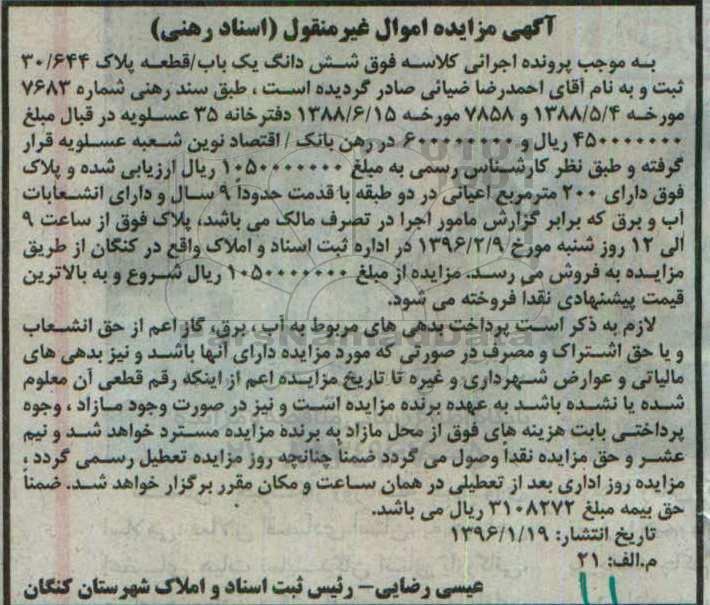 آگهی مزایده اموال غیرمنقول (اسناد رهنی)
به موجب پرونده اجرائی کلاسه فوق شش دانگ یک باب/قطعه پلاک ۳۰/۶۴۴
ثبت و به نام آقای احمدرضا ضیائی صادر گردیده است ، طبق سند رهنی شماره ۷۶۸۳
مورخه ۱۳۸۸/۵/۴ و ۷۸۵۸ مورخه ۱۳۸۸/۶/۱۵ دفترخانه ۳۵ عسلویه در قبال مبلغ
۴۵۰۰۰۰۰۰۰ ریال و ۶۰۰۰۰۰۰۰۰ در رهن بانک / اقتصاد نوین شعبه عسلویه قرار
گرفته و طبق نظر کارشناس رسمی به مبلغ ۱۰۵۰۰۰۰۰۰۰ ریال ارزیابی شده و پلاک
فوق دارای ۲۰۰ مترمربع اعیانی در دو طبقه با قدمت حدوداً ۹ سال و دارای انشعابات
آب و برق که برابر گزارش مامور اجرا در تصرف مالک می باشد، پلاک فوق از ساعت ۹
الی ۱۲ روز شنبه مورخ ۱۳۹۶/۲/۹ در اداره ثبت اسناد و املاک واقع در کنگان از طریق
مزایده به فروش می رسد. مزایده از مبلغ ۱۰۵۰۰۰۰۰۰۰ ریال شروع و به بالاترین
قیمت پیشنهادی نقدا فروخته می شود.
لازم به ذکر است پرداخت بدهی های مربوط به آب ، برق، گاز اعم از حق انشعاب
و یا حق اشتراک و مصرف در صورتی که مورد مزایده دارای آنها باشد و نیز بدهی های
مالیاتی و عوارض شهرداری و غیره تا تاریخ مزایده اعم از اینکه رقم قطعی آن معلوم
شده یا نشده باشد به عهده برنده مزایده است و نیز در صورت وجود مازاد ، وجوه
پرداختی بابت هزینه های فوق از محل مازاد به برنده مزایده مسترد خواهد شد و نیم
عشر و حق مزایده نقداً وصول می گردد ضمناً چنانچه روز مزایده تعطیل رسمی گردد ،
مزایده روز اداری بعد از تعطیلی در همان ساعت و مکان مقرر برگزار خواهد شد. ضمناً
حق بیمه مبلغ ۳۱۰۸۲۷۲ ریال می باشد.
تاریخ انتشار: ۱۳۹۶/۱/۱۹
م.الف: ۲۱
عیسی رضایی– رئیس ثبت اسناد و املاک شهرستان کنگان